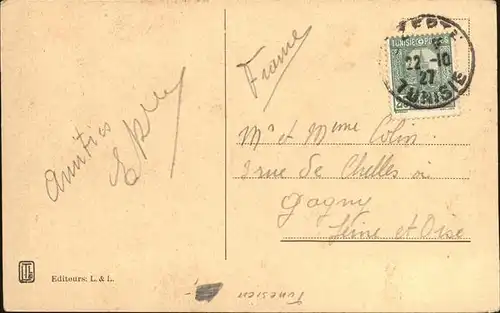 France
TUNISIE POSTES
22 -10
27
TUNISIE
Amitiés
Mr et Mme Colin
3 rue de Chelles
Gagny
Seine et Oise
Editeurs: L. & L.
Tunesien